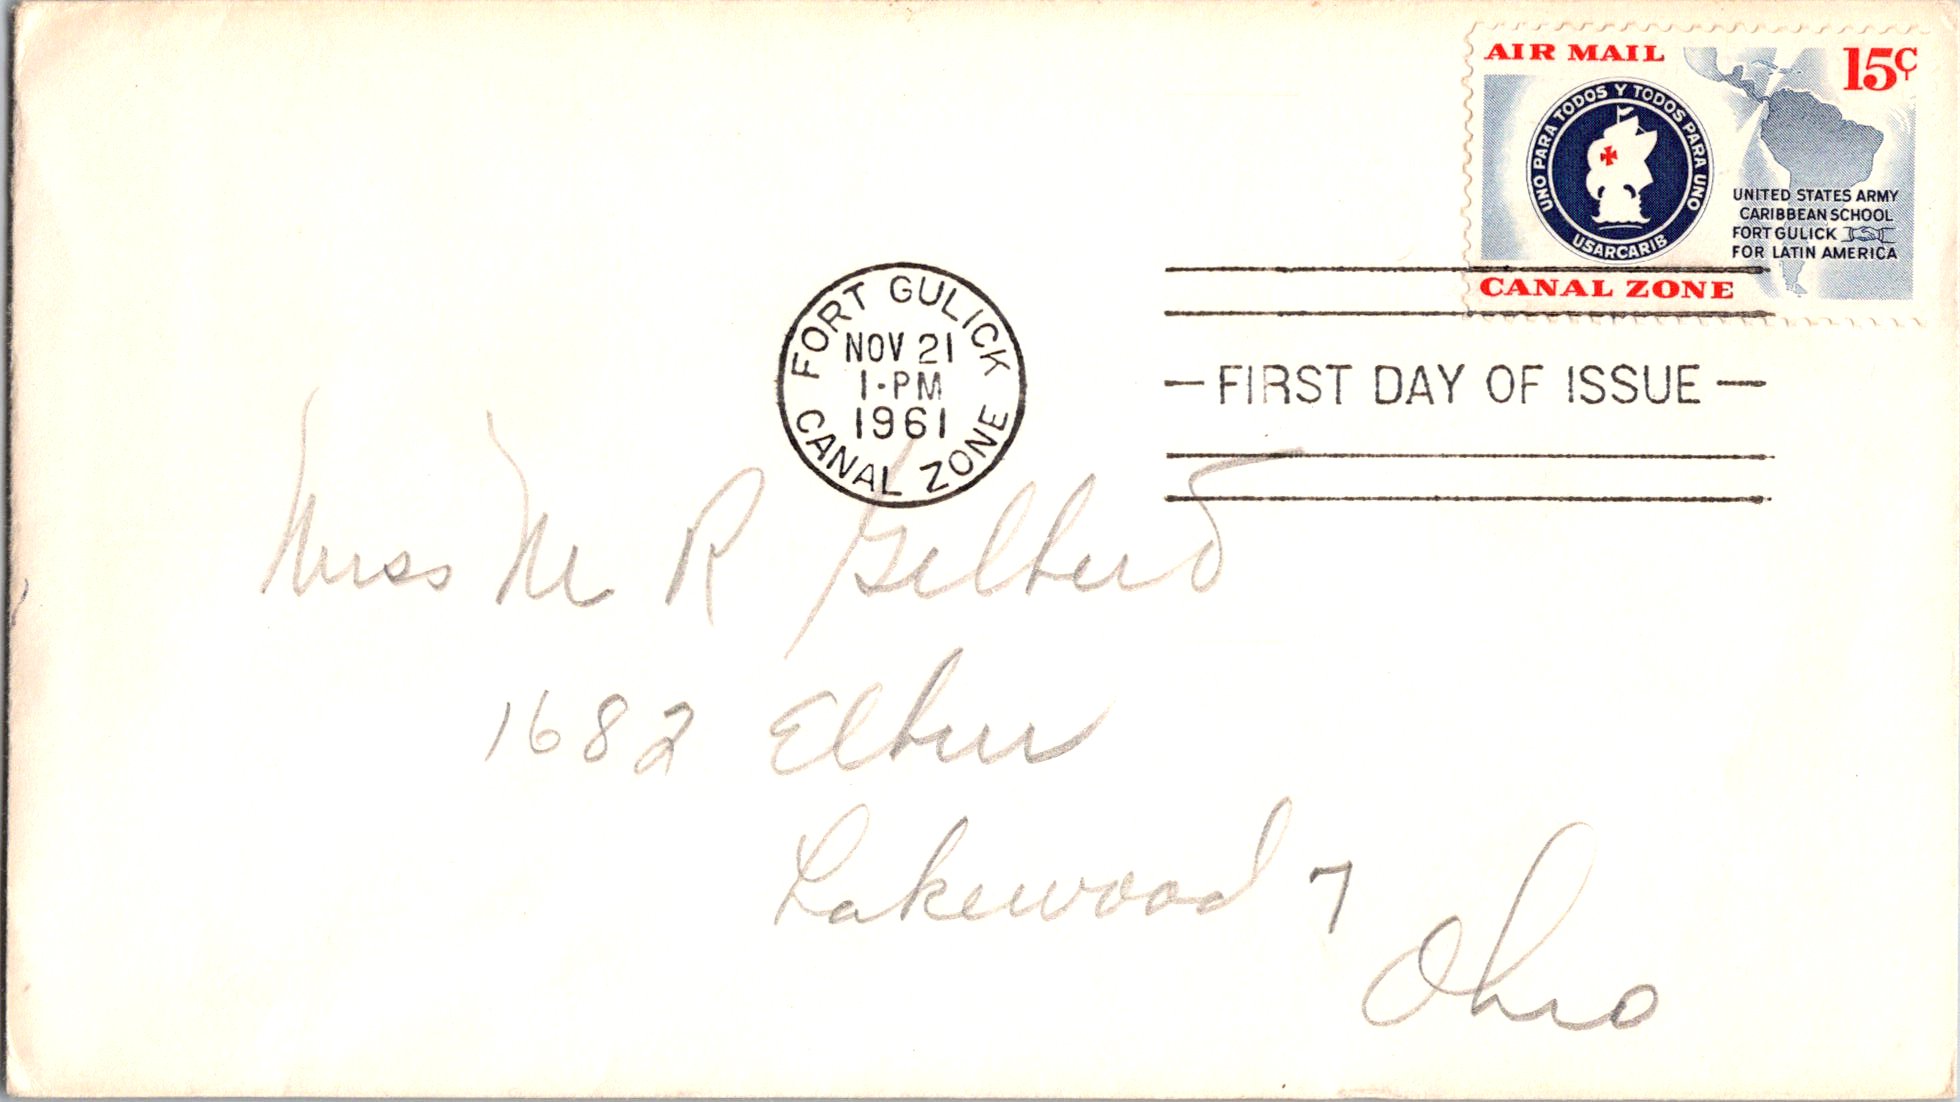 AIR MAIL 15¢
UNO PARA TODOS Y TODOS PARA UNO
USARCARIB
UNITED STATES ARMY
CARIBBEAN SCHOOL
FORT GULICK
FOR LATIN AMERICA
CANAL ZONE
FORT GULICK
NOV 21
1-PM
1961
CANAL ZONE
— FIRST DAY OF ISSUE —
Miss M R Gilbert
1682 Elbur
Lakewood 7
Ohio